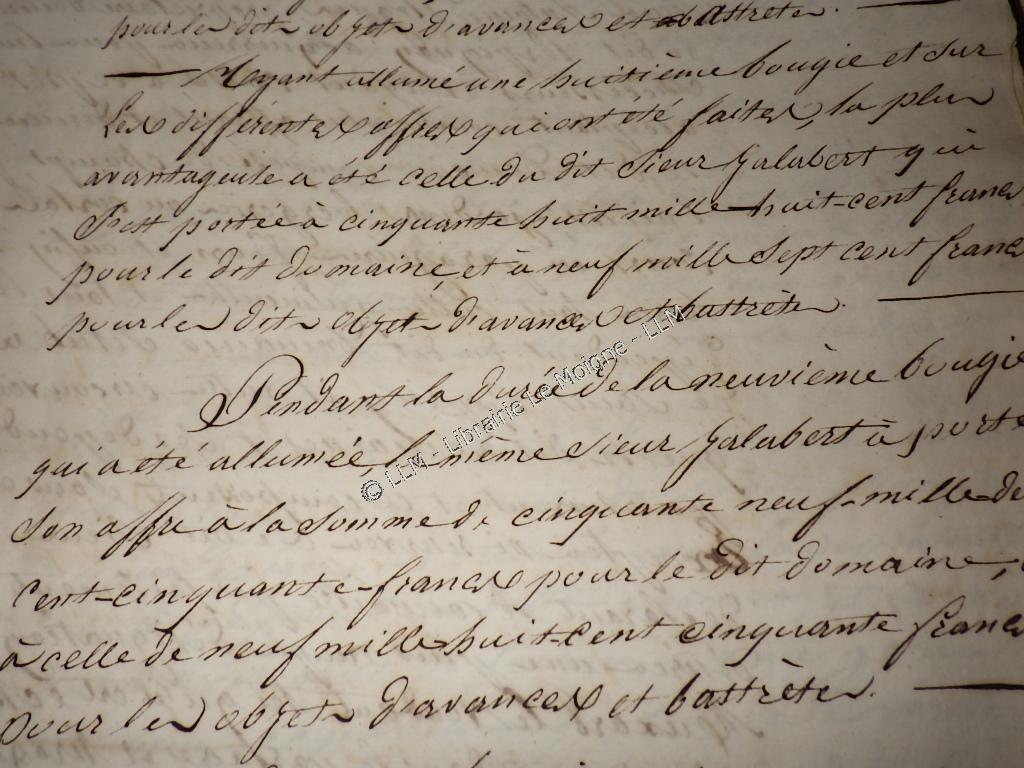 pour les dits objets d'avances et bastrete.
Ayant allumé une huitième bougie et sur
Les différentes offres qui ont été faites, la plus
avantageuse a été celle du dit Sieur Jalabert qui
S'est portée à cinquante huit mille huit-cent francs
pour le dit domaine, et à neuf mille sept cent francs
pour les dits objets d'avances et bastrète.
Pendant la durée de la neuvième bougie
qui a été allumée, le même sieur Jalabert à porté
Son offre à la somme de cinquante neuf-mille de
cent-cinquante-francs pour le dit domaine,
à celle de neuf mille huit-cent cinquante francs
pour les objets d'avances et bastrètes.
© LLM - Librairie Le Moigne - LLM